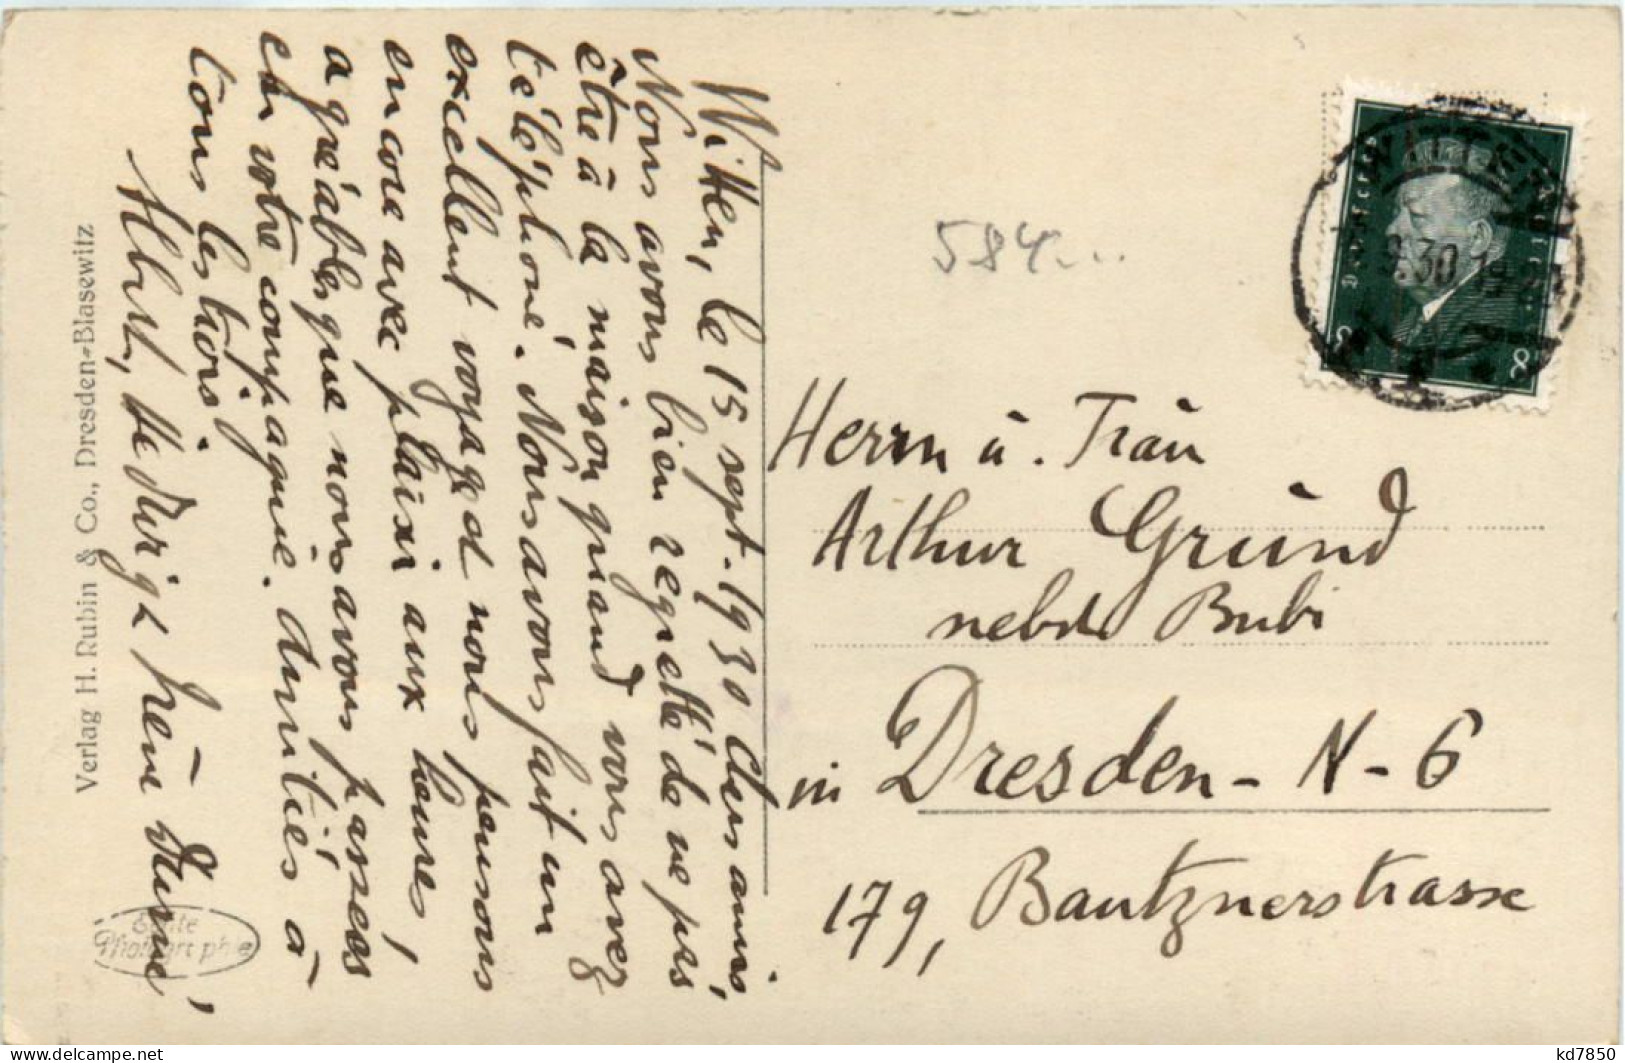 Witten, le 15 sept. 1930 Chers amis,
Nous avons bien regretté de ne pas
être à la maison quand vous avez
téléphoné. Nous avons fait un
excellent voyage et nous pensons
encore avec plaisir aux heures
agréables que nous avons passées
en votre compagnie. Amitiés à
tous les trois!
Albert,
Verlag H. Rubin & Co., Dresden-Blasewitz
Echte Photographie
584...
WITTEN
9.30 19-20
8 8
Herrn u. Frau
Arthur Grund
nebst Bubi
in Dresden-N-6
179, Bautznerstrasse
www.delcampe.net
kd7850